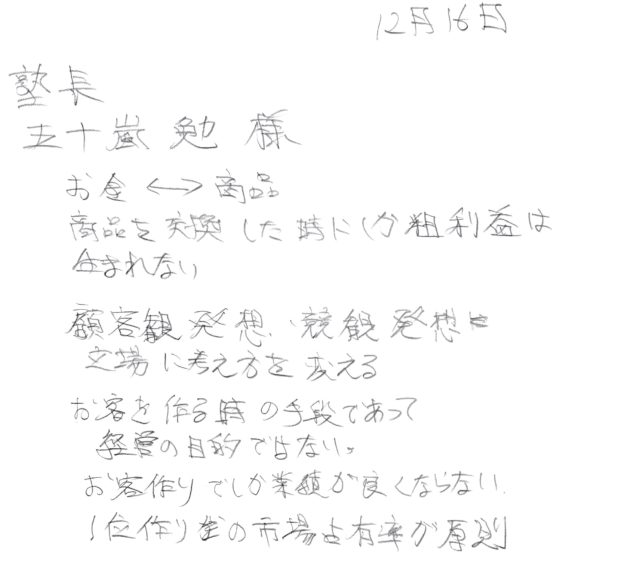 12月16日
塾長
五十嵐 勉 様
お金 ↔ 商品
商品を交換した時にしか粗利益は
生まれない
顧客観発想、競観発想に
立場に考え方を変える
お客を作る時の手段であって
経営の目的ではない。
お客作りでしか業績が良くならない。
1位作り型の市場占有率が原則